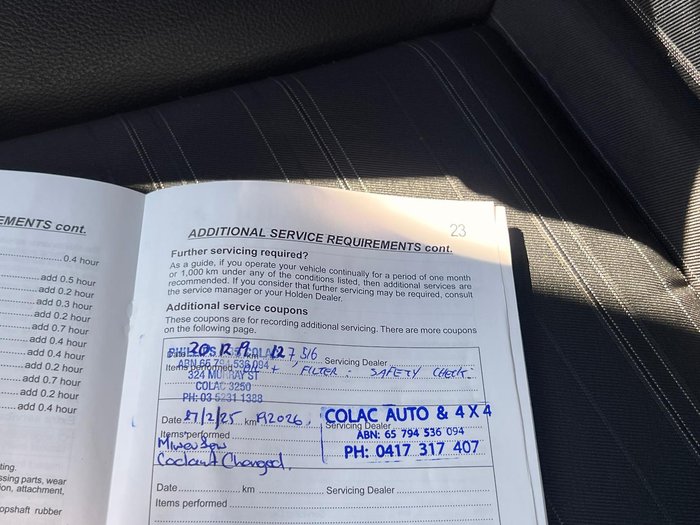 EMENTS cont.
0.4 hour
add 0.5 hour
add 0.2 hour
add 0.3 hour
add 0.2 hour
add 0.7 hour
add 0.4 hour
add 0.4 hour
add 0.2 hour
add 0.7 hour
add 0.2 hour
add 0.4 hour
ting.
ssing parts, wear
ion, attachment,
opshaft rubber
23
ADDITIONAL SERVICE REQUIREMENTS cont.
Further servicing required?
As a guide, if you operate your vehicle continually for a period of one month
or 1,000 km under any of the conditions listed, then additional services are
recommended. If you consider that further servicing may be required, consult
the service manager or your Holden Dealer.
Additional service coupons
These coupons are for recording additional servicing. There are more coupons
on the following page.
Date 20.12.19 km 127,516 Servicing Dealer
ABN 65 794 536 094
Items performed OIL + FILTER: SAFETY CHECK.
324 MURRAY ST
COLAC 3250
PH: 03 5231 1388
Date 27/2/25 km 192026 Servicing Dealer
COLAC AUTO & 4X4
ABN: 65 794 536 094
PH: 0417 317 407
Items performed
Coolant Changed.
Date km Servicing Dealer
Items performed